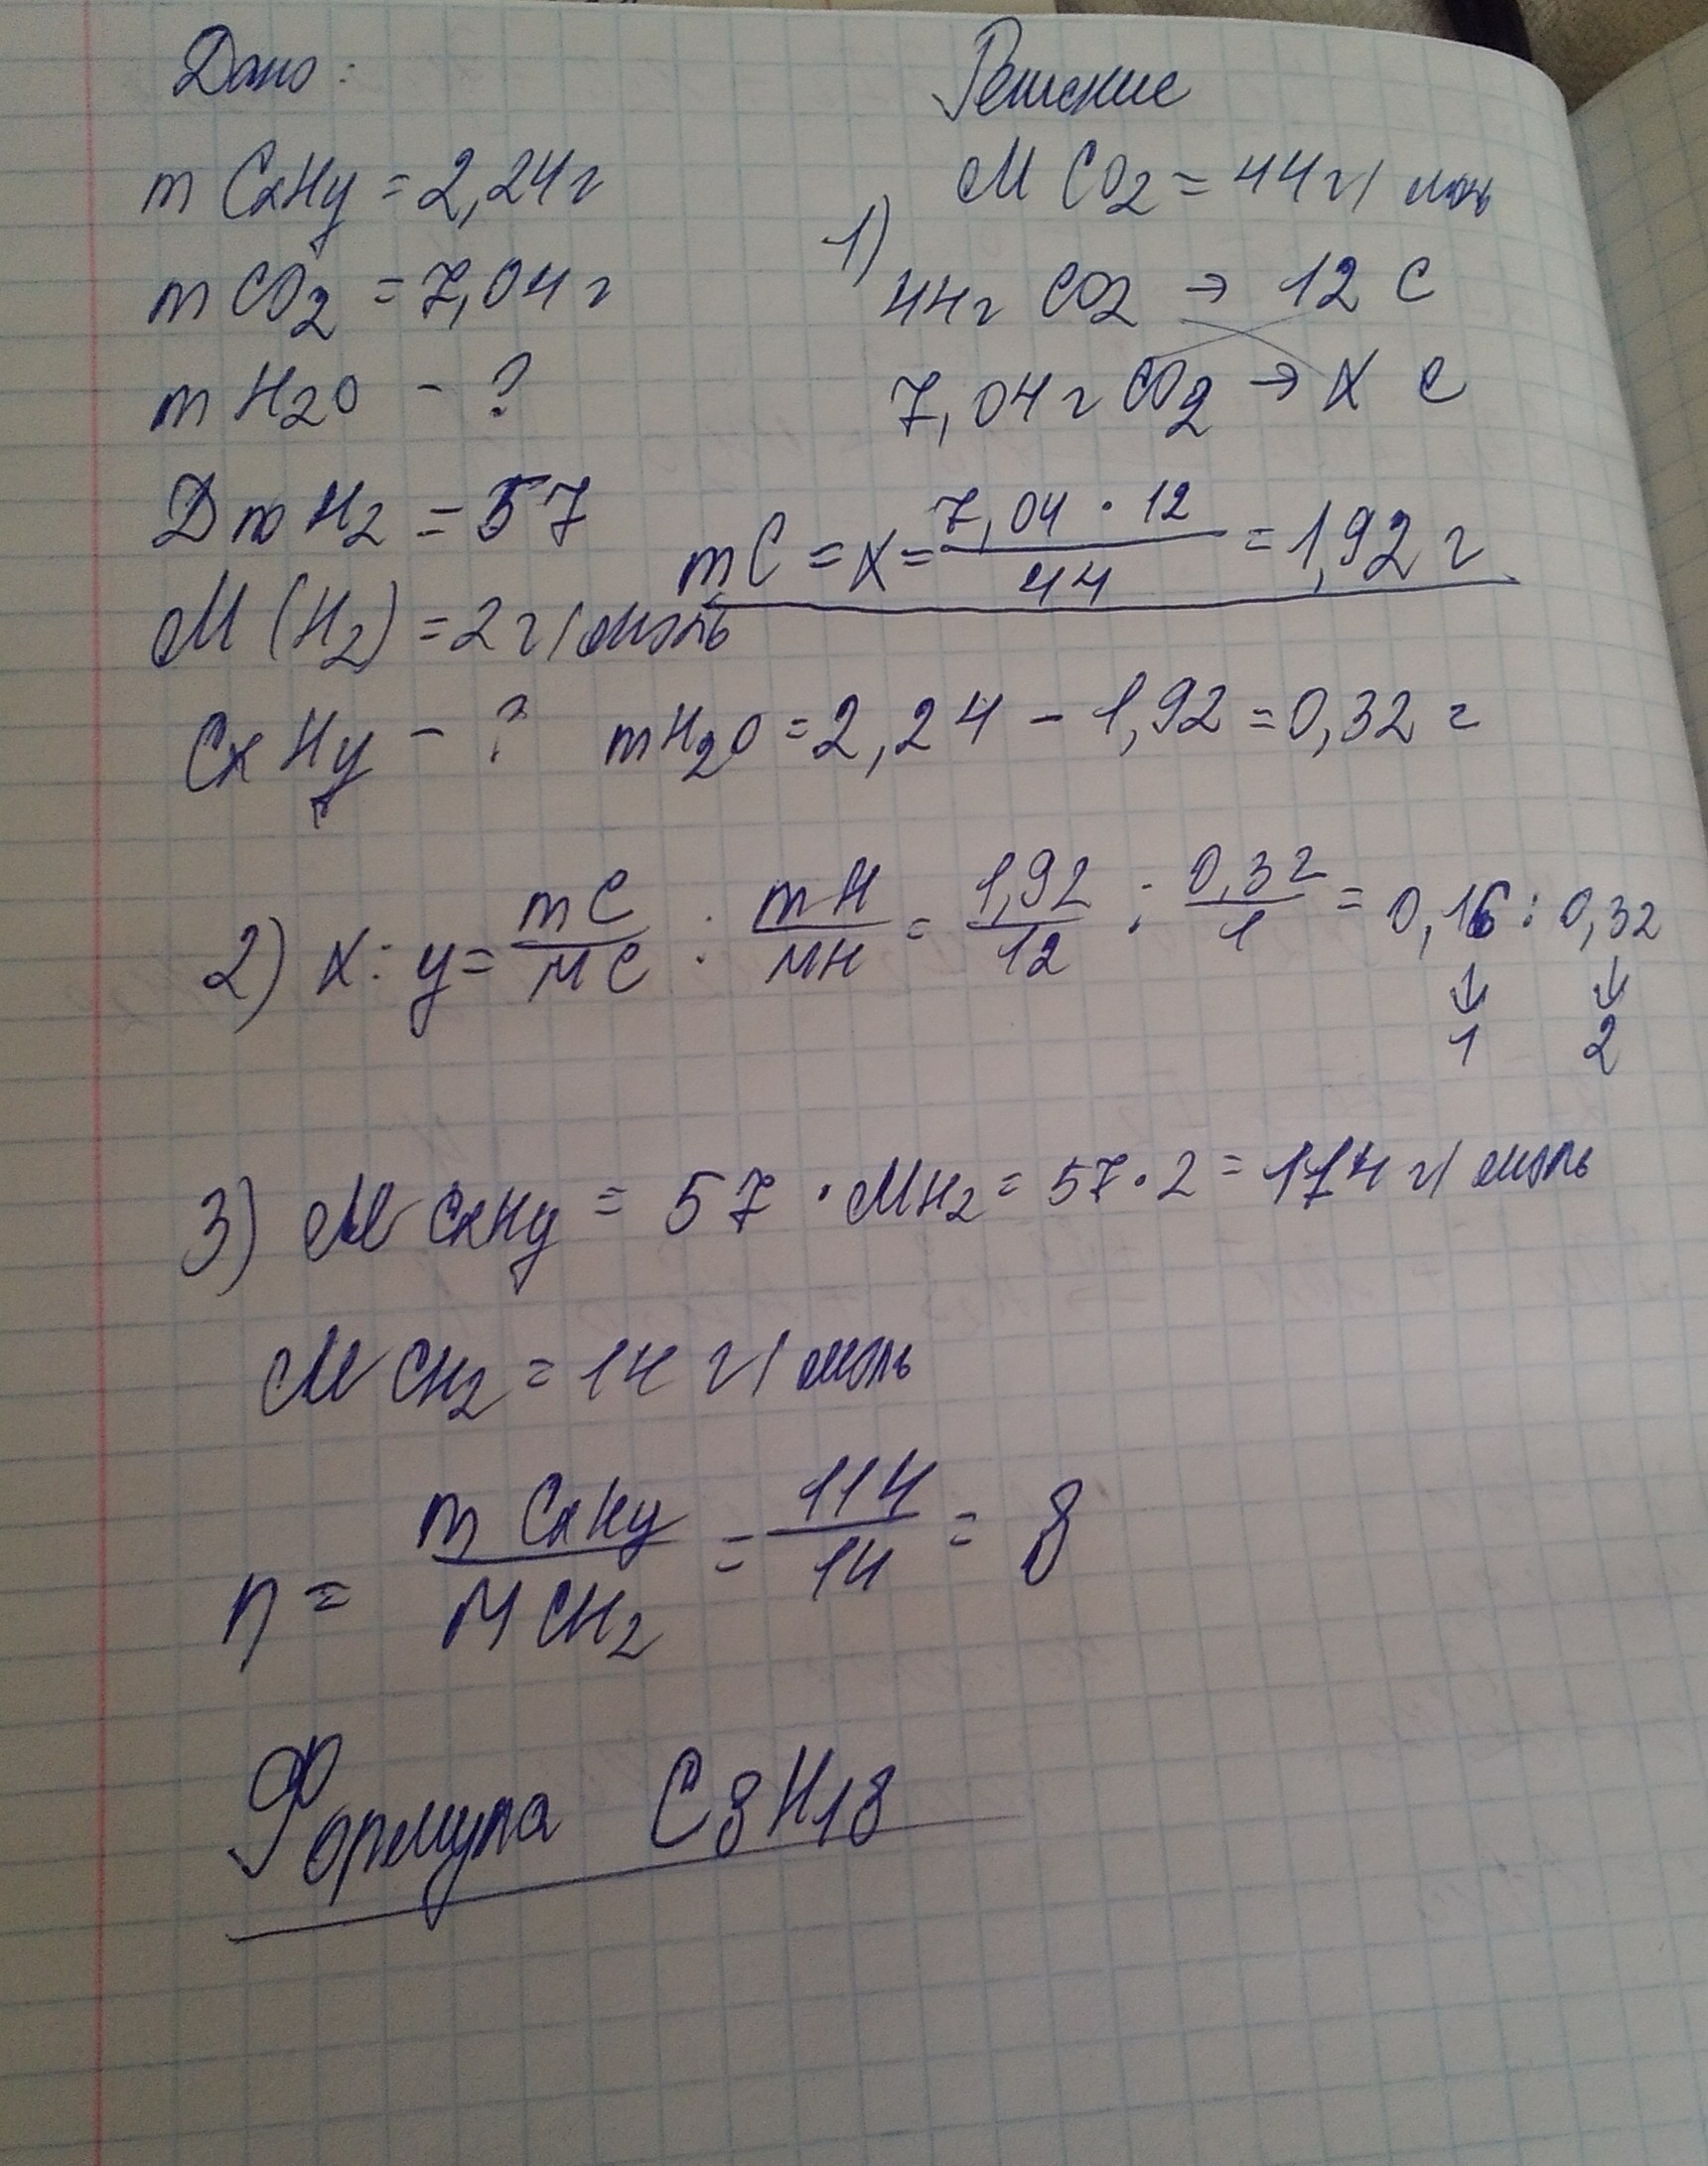 Дано:
m CxHy = 2,24 г
m CO2 = 7,04 г
m H2O - ?
D по H2 = 57
M (H2) = 2 г/моль
Cx Hy - ?
Решение
M CO2 = 44 г/ моль
1)
44 г CO2 → 12 C
7,04 г CO2 → x C
mC = x = 7,04 · 12 / 44 = 1,92 г
mH2O = 2,24 - 1,92 = 0,32 г
2) x : y = mC / MC : mH / MH = 1,92 / 12 : 0,32 / 1 = 0,16 : 0,32
↓ ↓
1 2
3) M CxHy = 57 · MH2 = 57 · 2 = 114 г/ моль
M CH2 = 14 г/ моль
n = m CxHy / M CH2 = 114 / 14 = 8
Формула C8H18